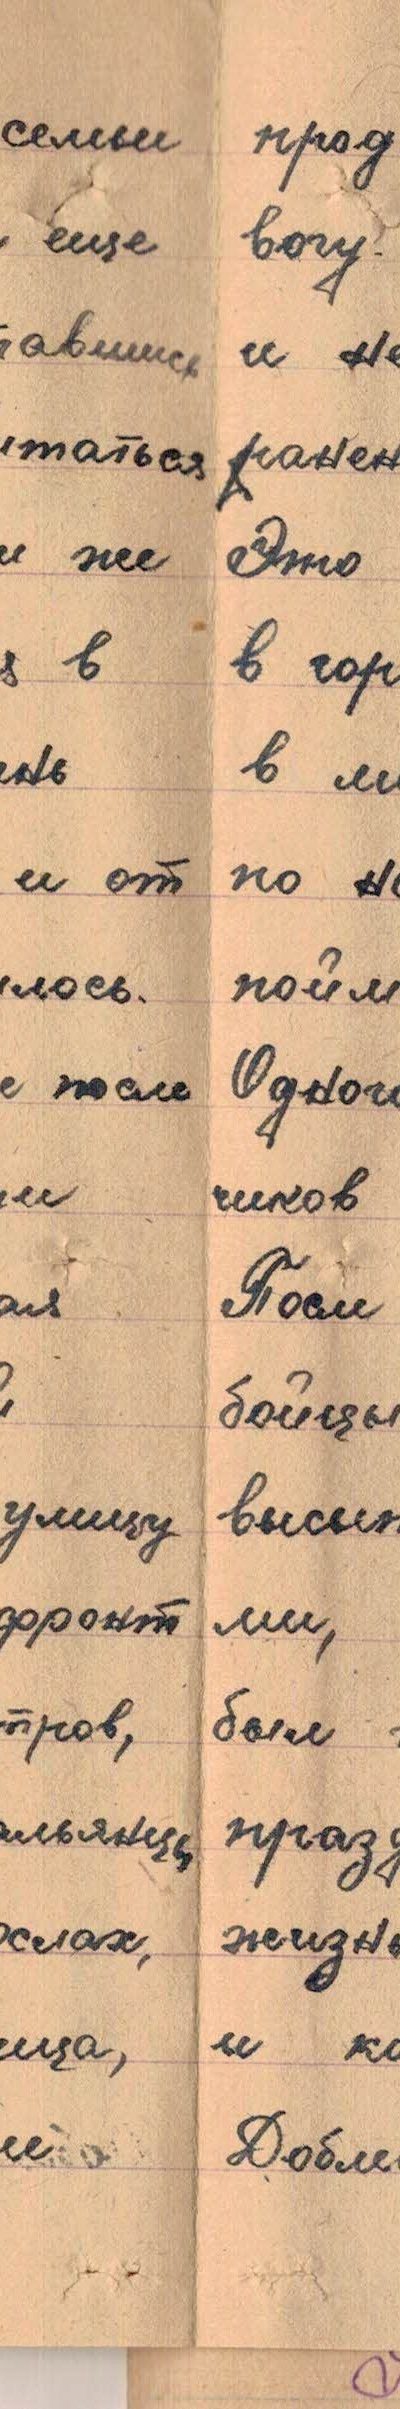 семьи
еще
тавшись
итаться
и же
я в
нь
и от
илось.
е после
ми
ая
улицу
фронт
тров,
альянцы
ослах,
ица,
ие
прод
вогу.
и не
ранен
Это
в гор
в ми
по не
пойм
Одног
чиков
После
бойцы
высып
ми,
был
празд
жизнь
и ко
Добле